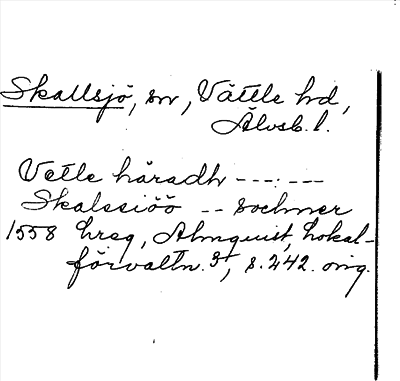 Skallsjö, sn, Vättle hd,
Älvsb. l.
Vetle häradh ---:---
Skalssiöö -- sochner
1558 hreg, Almquist, Lokal-
förvaltn. 3, s. 242. orig.